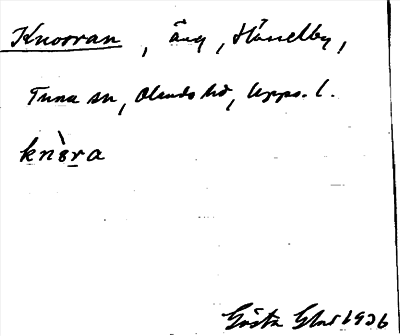 Knorran, äng, Hånelby,
Tuna sn, Olands hd, Upps. l.
knèra
Gösta 1926